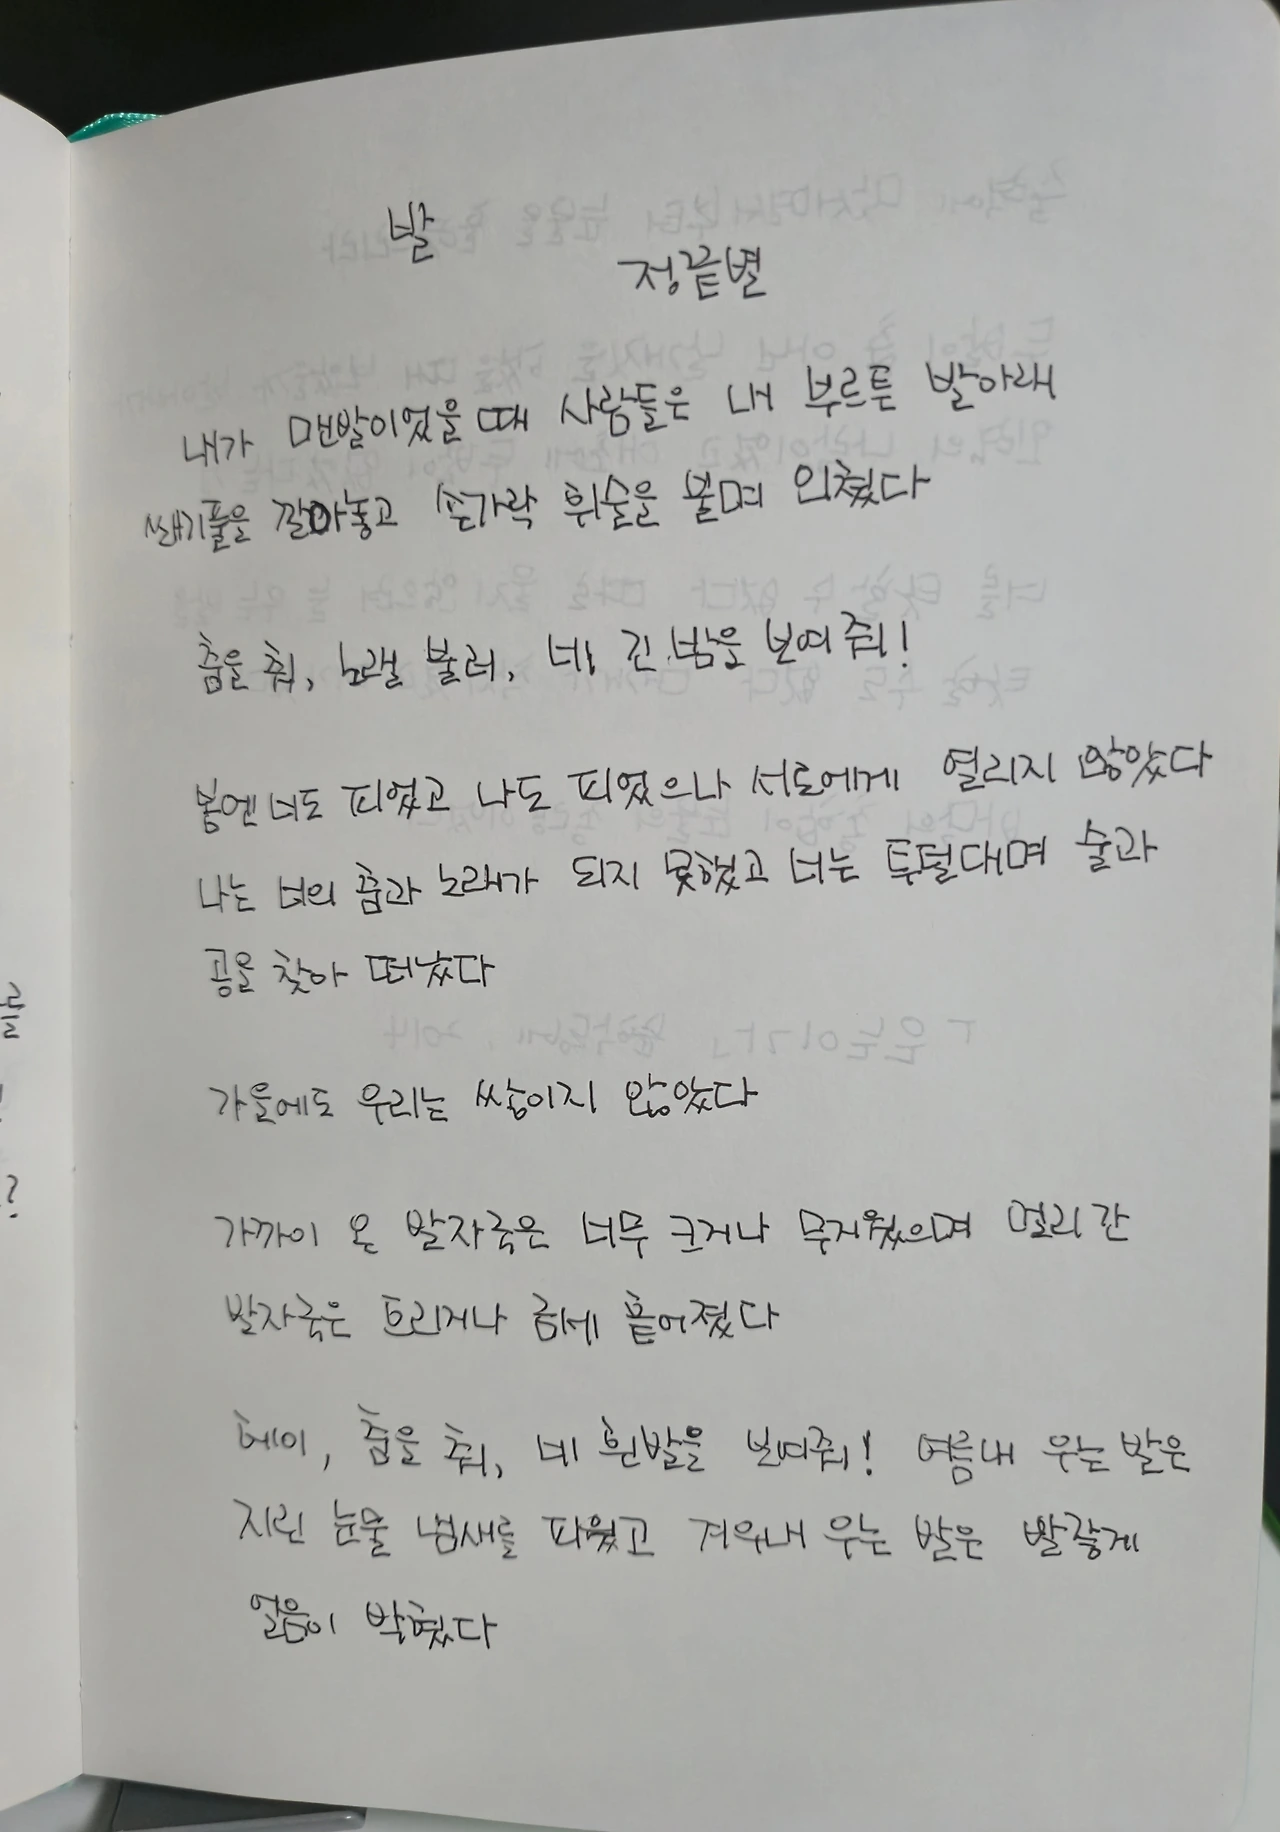 발
정끝별
내가 맨발이었을 때 사람들은 내 부르튼 발아래
쐐기풀을 깔아놓고 손가락 휘슬을 불며 외쳤다
춤을 춰, 노랠 불러, 네 긴 밤을 보여줘!
봄엔 너도 피었고 나도 피었으나 서로에게 열리지 않았다
나는 너의 춤과 노래가 되지 못했고 너는 투덜대며 술과
공을 찾아 떠났다
가을에도 우리는 쌓이지 않았다
가까이 온 발자국은 너무 크거나 무거웠으며 멀리 간
발자국은 흐리거나 금세 흩어졌다
헤이, 춤을 춰, 네 흰 발을 보여줘! 여름내 우는 발은
지린 눈물 냄새를 피웠고 겨우내 우는 발은 빨갛게
얼음이 박혔다